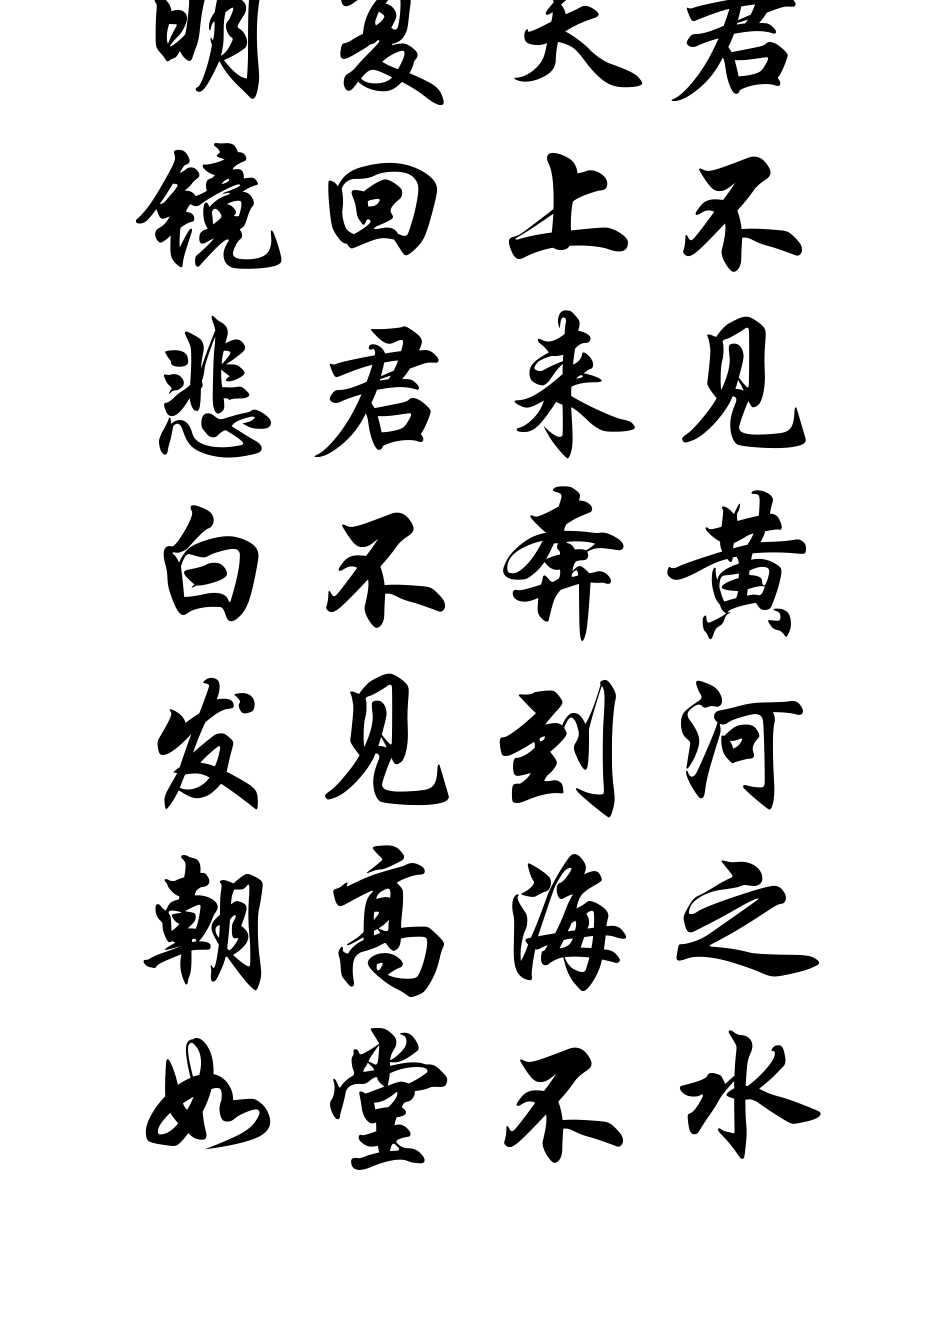 君不见黄河之水
天上来奔到海不
复回君不见高堂
明镜悲白发朝如